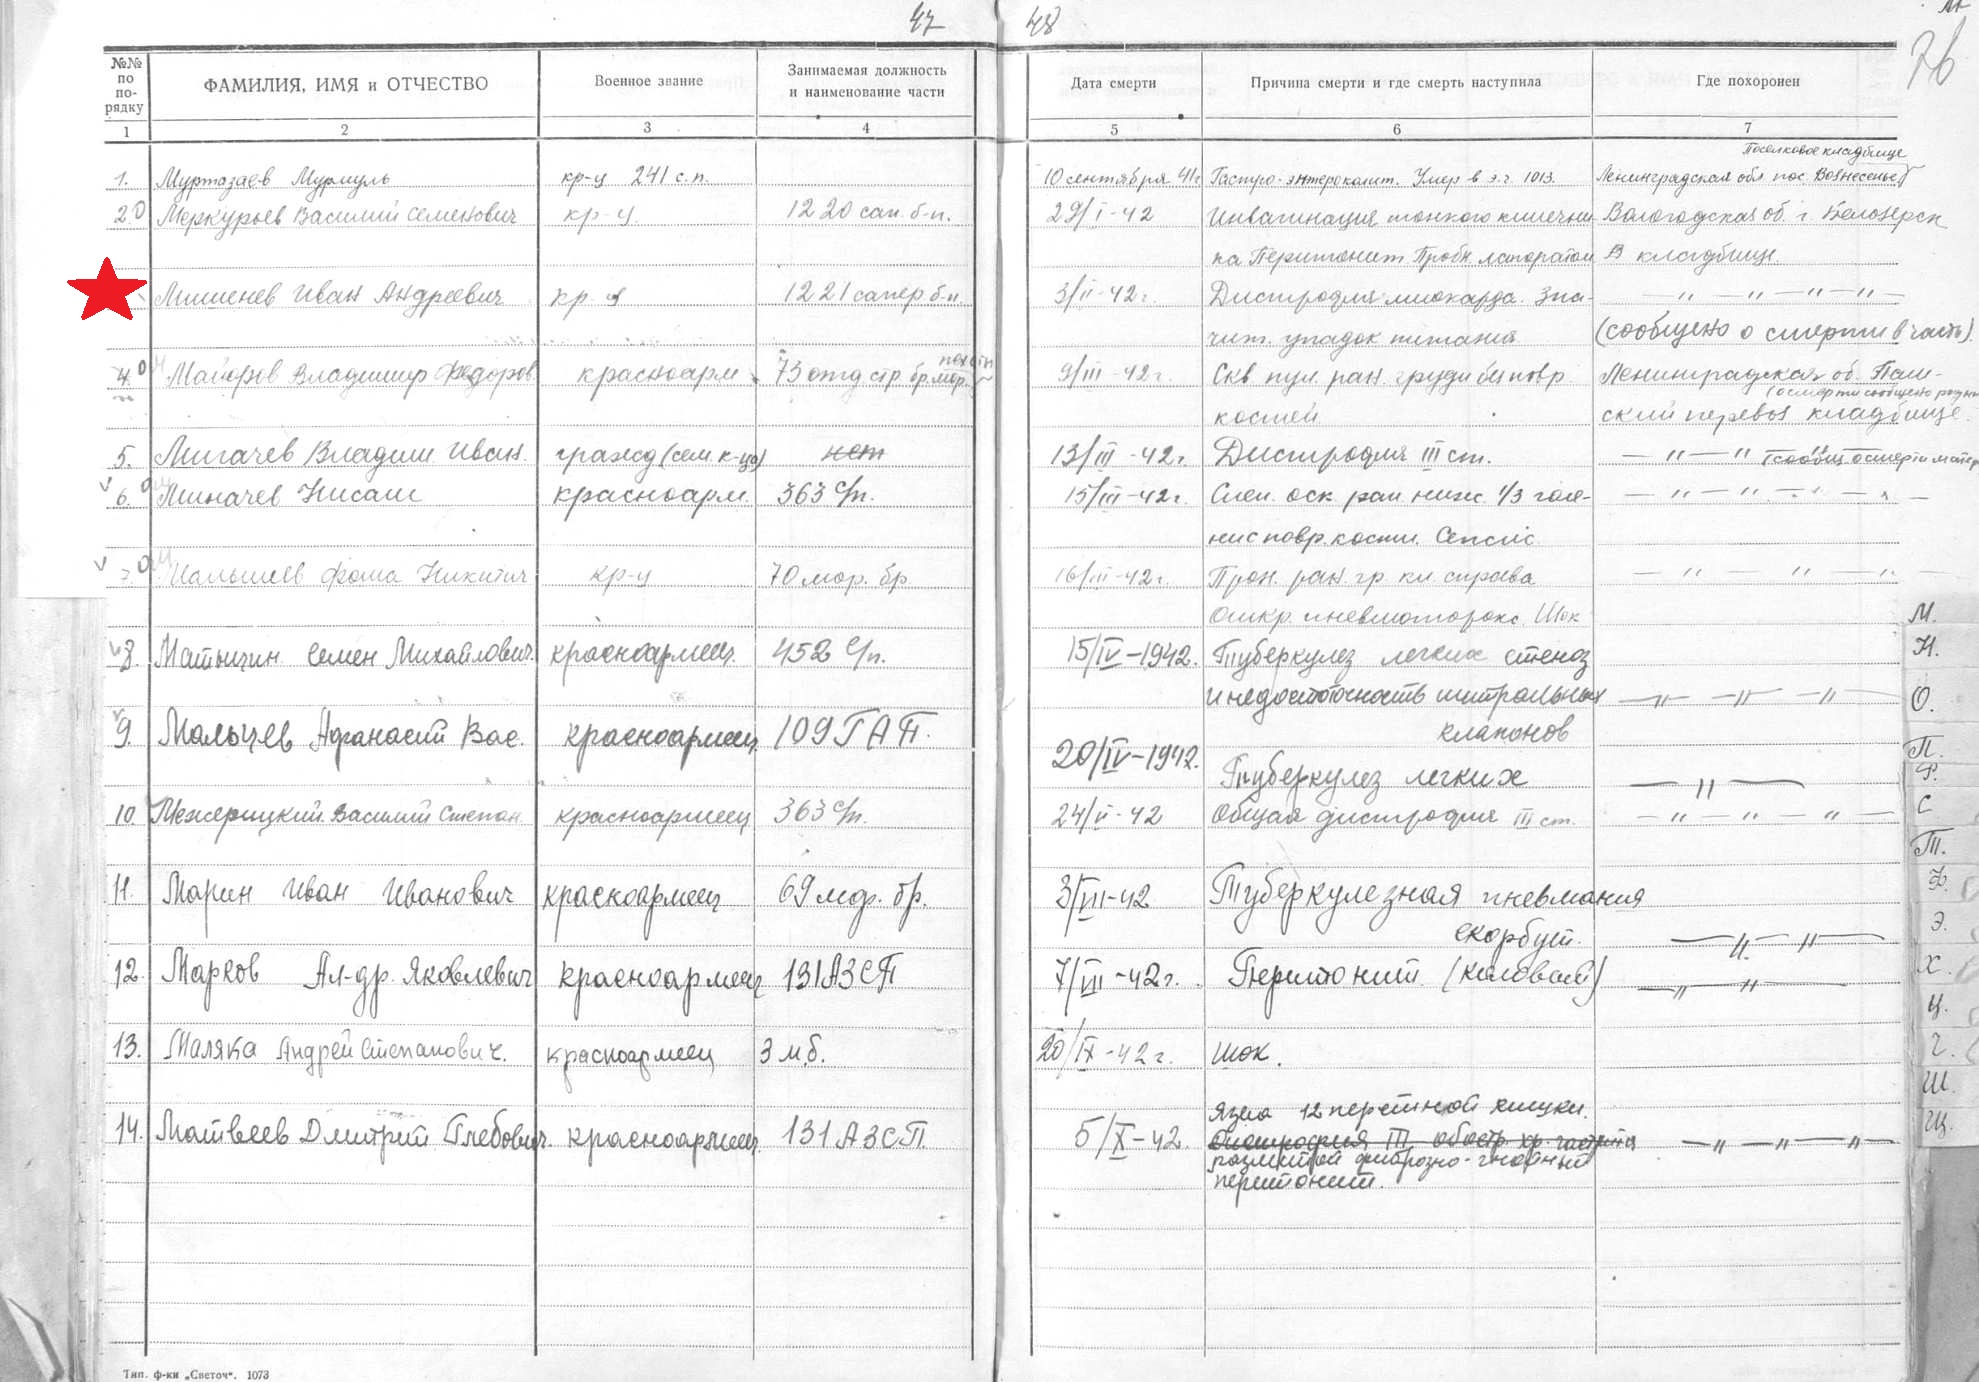 47
48
76
№№ по по-рядку
ФАМИЛИЯ, ИМЯ и ОТЧЕСТВО
Военное звание
Занимаемая должность и наименование части
Дата смерти
Причина смерти и где смерть наступила
Где похоронен
1 2 3 4 5 6 7
Поселковое кладбище
1. Муртазаев Мурмуль кр-ц 241 с.п. 10 сентября 41г Гастро-энтероколит. Умер в э.г. 1013. Ленинградская обл пос. Вознесенье
2 Меркурьев Василий Семенович кр-ц. 1220 сап. б-н. 29/I-42 Инвагинация тонкого кишечни- Вологодская об. г. Белозерск
ка Перитонит Пробн. лапоратом В кладбище.
Мишенев Иван Андреевич кр-ц 1221 сапер б-н. 3/II-42г. Дистрофия миокарда. Зна- — " — " — " — " —
чит. упадок питания (сообщено о смерти в часть).
4. Майоров Владимир Федоров. красноарм. 73 отд стр. бр. мор. 9/III-42г. Скв. пул. ран. груди без повр. Ленинградская об. Паш-
костей. ский перевоз кладбище.
5. Мигачев Владим Иван. гражд (сем. к-ца) нет 13/III-42г. Дистрофия III ст. — " — " (сообщ. о смерти матер
6. Миначев Нисам красноарм. 363 с/п. 15/III-42г. Слеп. оск. ран. нижн. 1/3 голе- — " — " — " —
ни с повр. кости. Сепсис.
7. Малышев Фома Никитич кр-ц 70 мор. бр. 16/III-42г. Прон. ран. гр. кл. справа — " — " — " —
Откр. пневмоторокс. Шок
8. Матыгин Семен Михайлович. красноармеец. 452 с/п. 15/IV-1942. Туберкулез легких стеноз
и недостаточность митральных — " — " — " —
клапонов
9. Малычев Афанасий Вас. красноармеец 109 ГАП. 20/IV-1942. Туберкулез легких — " —
10. Межерицкий Василий Степан. красноармеец 363 с/п. 24/II-42 Общая дистрофия III ст. — " — " — " —
11. Марин Иван Иванович красноармеец 69 мор. бр. 3/VII-42 Туберкулезная пневмания
скорбут. — " — " —
12. Марков Ал-др. Яковлевич красноармеец 131 АЗСП 7/VIII-42г. Перитонит (каловый) — " — " —
13. Маляка Андрей Степанович. красноармеец 3 м.б. 20/IX-42г. Шок.
Язва 12 перстной кишки.
14. Матвеев Дмитрий Глебович. красноармеец. 131 АЗСП. 5/X-42. Дистрофия III обостр. хр. гастрита — " — " — " —
разлитой фиброзно-гнойный
перитонит.
М.
Н.
О.
П.
Р.
С
Т.
Ф.
Э.
Х.
Ц.
Ч.
Ш.
Щ.
Тип. ф-ки „Светоч". 1073